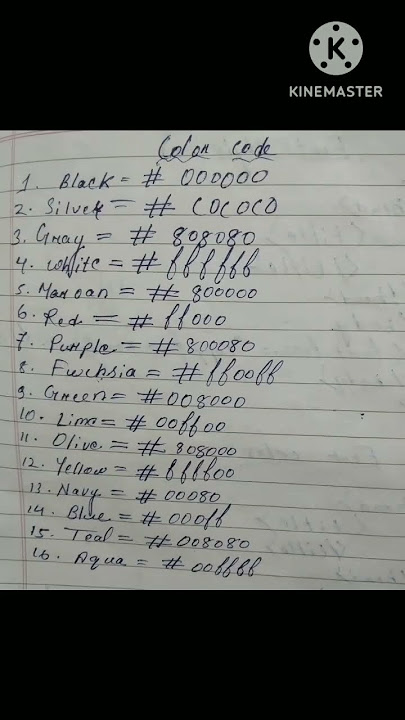 KINEMASTER
Color code
1. Black = # 000000
2. Silver = # C0C0C0
3. Gray = # 808080
4. White = # ffffff
5. Maroan = # 800000
6. Red = # ff000
7. Purple = # 800080
8. Fuchsia = # ff00ff
9. Green = # 008000
10. Lime = # 00ff00
11. Olive = # 808000
12. Yellow = # ffff00
13. Navy = # 00080
14. Blue = # 000ff
15. Teal = # 008080
16. Aqua = # 00ffff